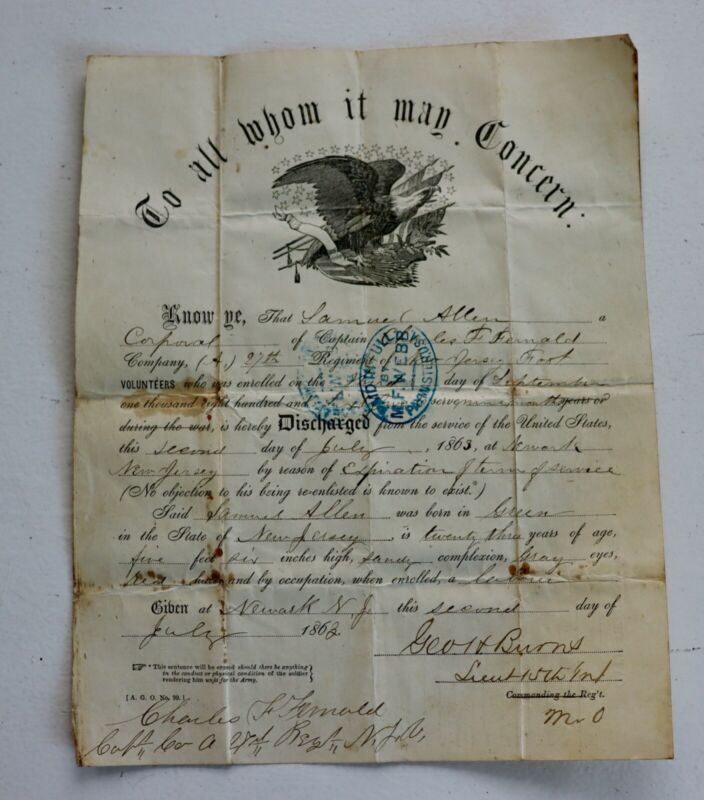 To all whom it may Concern:
Know ye, That Samuel Allen a
Corporal of Captain Charles F Fernald
Company, (A,) 27th Regiment of New Jersey Foot
VOLUNTEERS who was enrolled on the day of September
one thousand eight hundred and to serve nine months years or
during the war, is hereby Discharged from the service of the United States,
this second day of July, 1863, at Newark
New Jersey by reason of Expiration of term of service
(No objection to his being re-enlisted is known to exist.*)
Said Samuel Allen was born in Green
in the State of New Jersey, is twenty three years of age,
five feet six inches high, Sandy complexion, Gray eyes,
hair, and by occupation, when enrolled, a
Given at Newark N.J. this second day of
July 1863.
Geo H Burns
Lieut 15th Inf
Commanding the Reg't.
M. O
☞ *This sentence will be erased should there be anything
in the conduct or physical condition of the soldier
rendering him unfit for the Army.
[A. G. O. No. 99.]
Charles F Fernald
Capt. Co A Regt. N.J.V.
M.F. WEBB